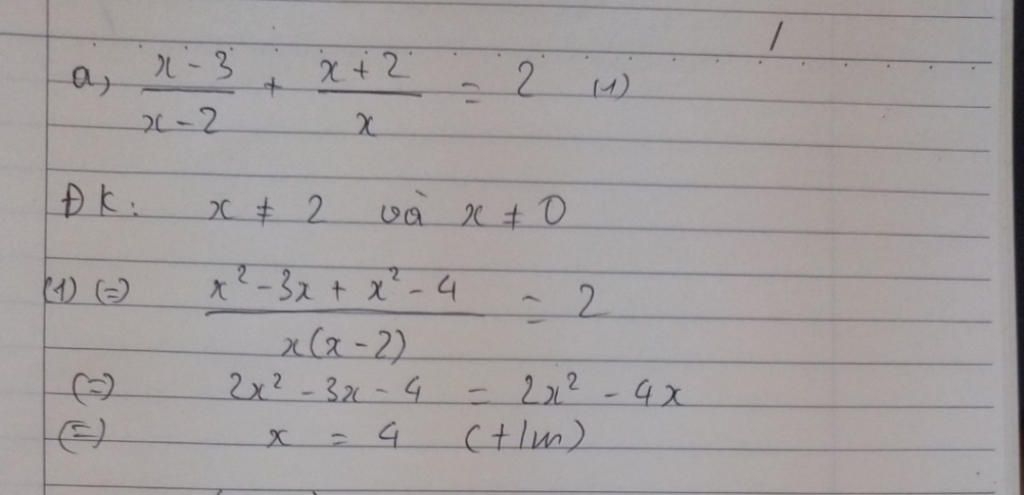 a, (x - 3)/(x - 2) + (x + 2)/x = 2 (1)
ĐK: x ≠ 2 và x ≠ 0
(1) (=) (x² - 3x + x² - 4)/(x(x - 2)) = 2
(=) 2x² - 3x - 4 = 2x² - 4x
(=) x = 4 (t/m)